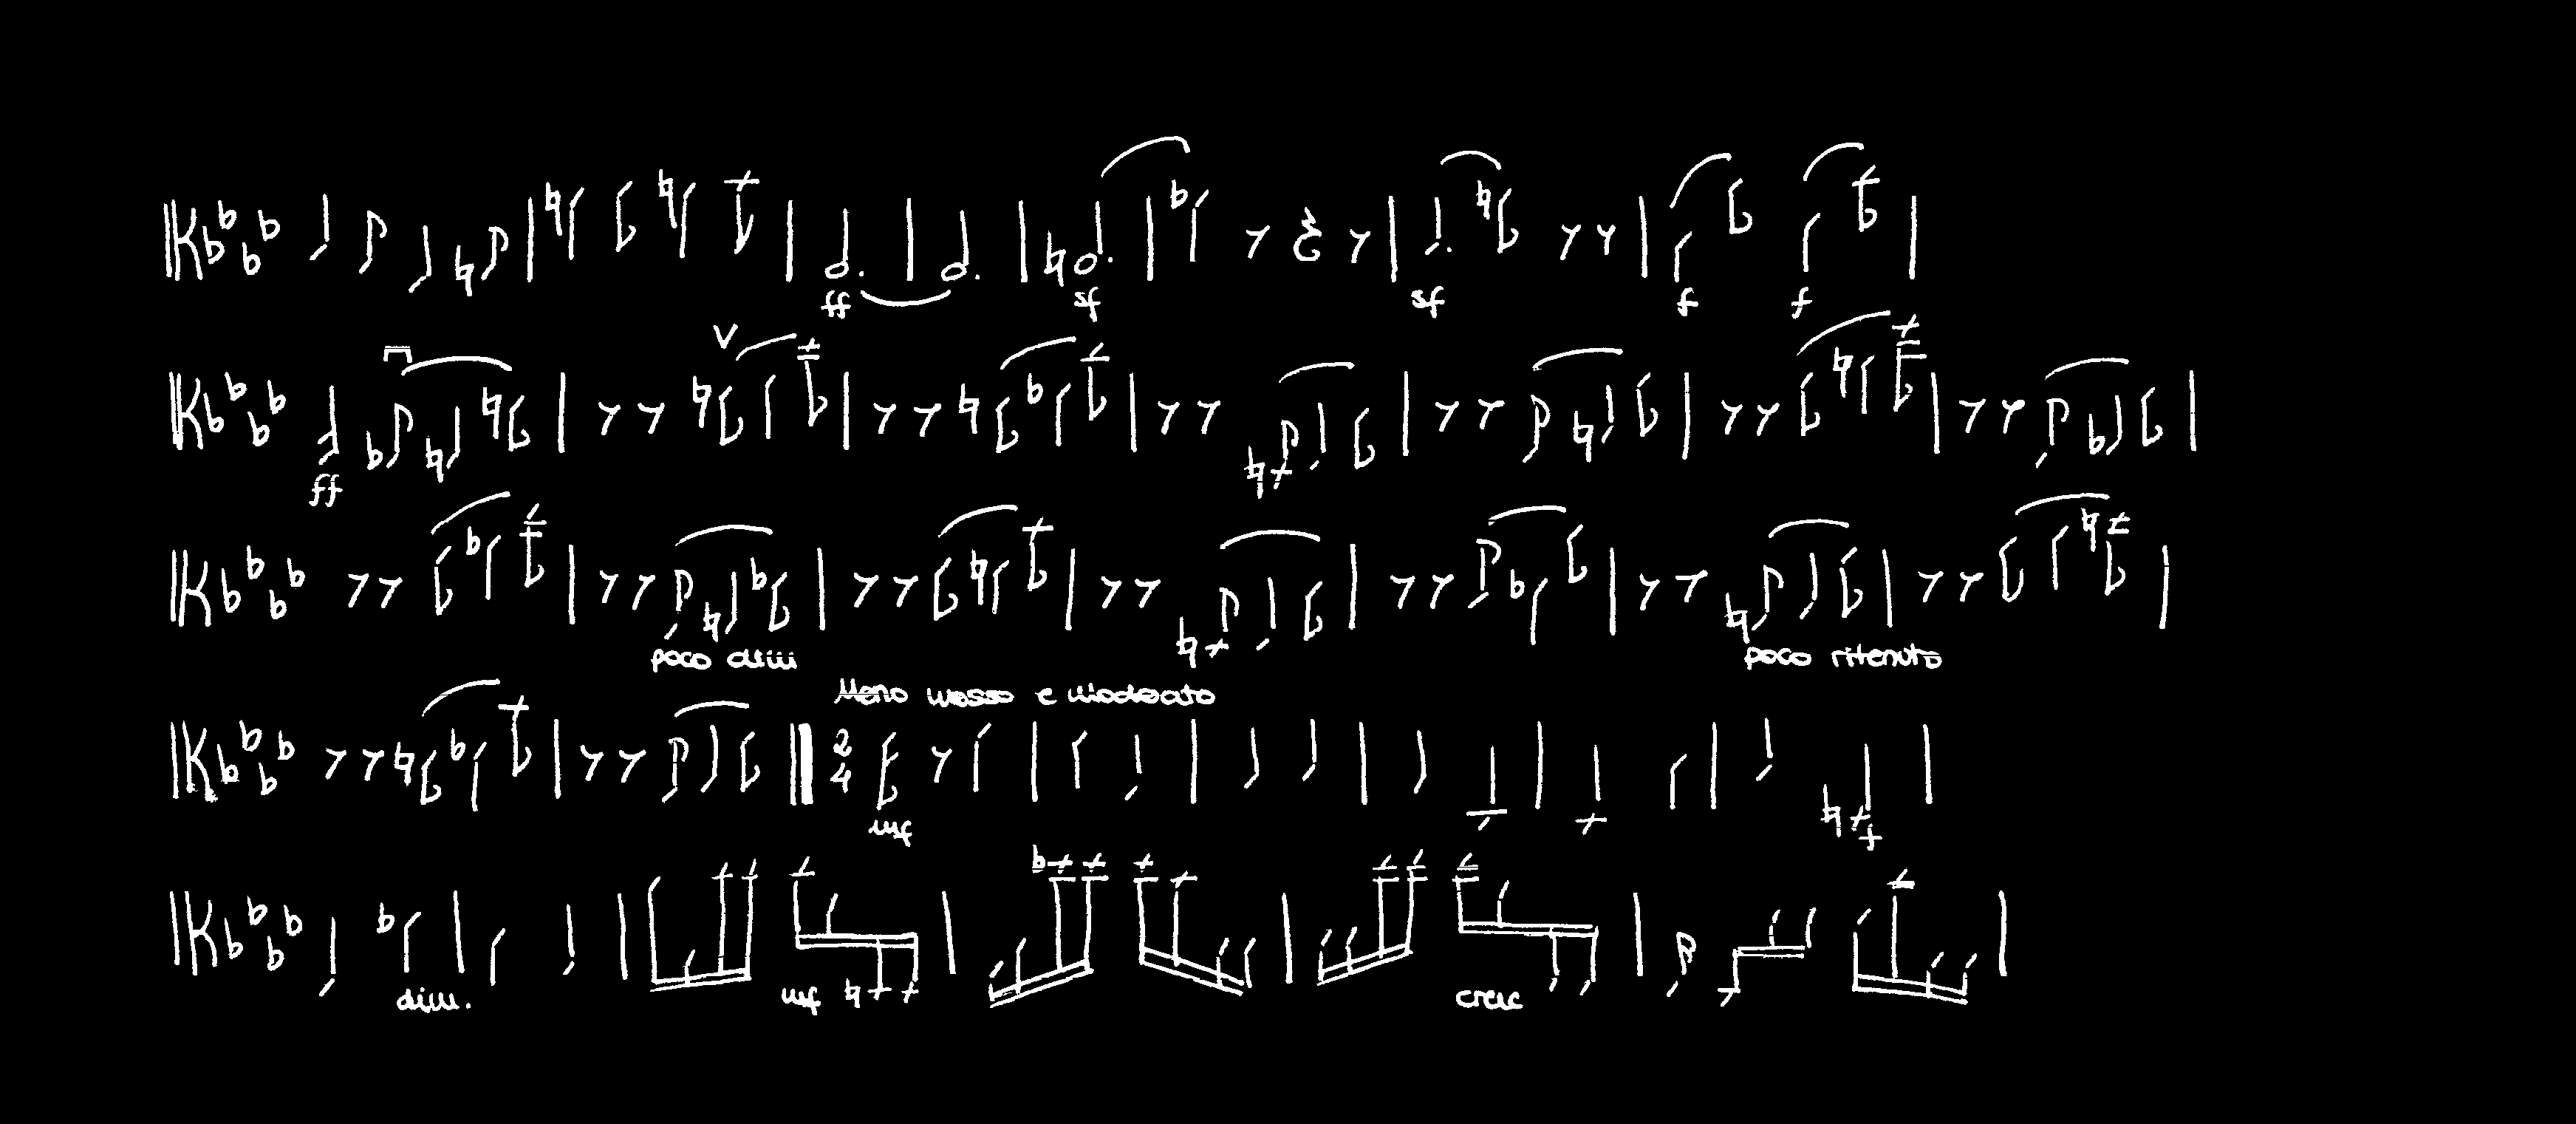 ff sf sf f f
ff
poco dim poco ritenuto
Meno mosso e moderato
2
4
mf
dim. mf cresc